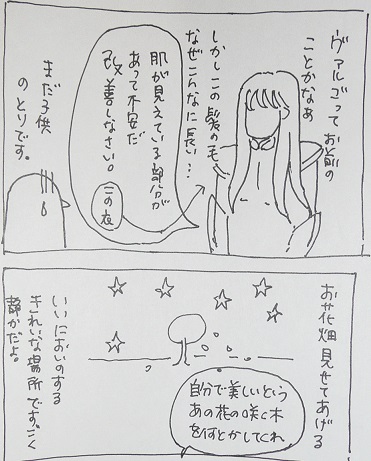 ヴァルゴって お前の
ことかなあ
しかしこの髪の毛
なぜこんなに長い…
肌が見えている部分が
あって不安だ
改善しなさい。
この衣
まだ子供
のとりです。
お花畑見せてあげる
自分で美しいという
あの花の咲く木
を何とかしてくれ
いいにおいのする
きれいな場所です。ごく
静かだよ。